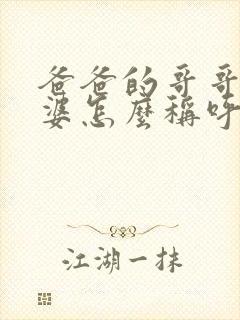 爸爸的哥哥
婆怎麼稱呼
江湖一抹